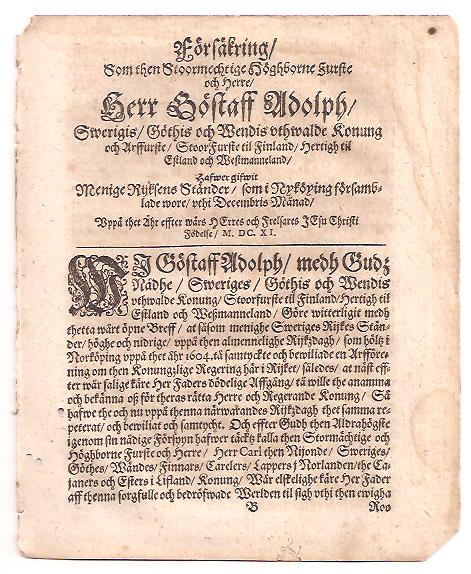 Försäkring/
Som then Stoormechtige Höghborne Furste
och Herre/
Herr Göstaff Adolph/
Swerigis/ Göthis och Wendis vthwalde Konung
och Arffurste/ StoorFurste til Finland/ Hertigh til
Estland och Westmanneland/
Hafwer gifwit
Menige Rijksens Ständer/ som i Nyköping församb-
lade wore/ vthi Decembris Månad/
Vppå thet Åhr effter wårs HErres och Frelsares JEsu Christi
Födelse/ M. DC. XI.
WJ Göstaff Adolph/ medh Gudz
Nådhe/ Sweriges/ Göthis och Wendis
vthwalde Konung/ Stoorfurste til Finland/ Hertigh til
Estland och Weßmanneland/ Göre witterligit medh
thetta wårt öpne Breff/ at såsom menighe Sweriges Rijkes Stän-
der/ höghe och nidrige/ vppå then almennelighe Rijkzdagh/ som höltz i
Norköping vppå thet åhr 1604. tå samtyckte och bewiliade en Arfföre-
ning om then Konungzlige Regering här i Rijket/ således/ at näst eff-
ter wår salige käre Her Faders dödelige Affgång/ tå wille the anamma
och bekänna oß för theras rätta Herre och Regerande Konung/ Så
hafwe the och nu vppå thenna närwarandes Rijkzdagh thet samma re-
peterat/ och bewiliat och samtycht. Och effter Gudh then Aldrahögste
igenom sin nådige Försyyn hafwer täckts kalla then Stormächtige och
Höghborne Furste och Herre/ Herr Carl then Nijonde/ Sweriges/
Göthes/ Wändes/ Finnars/ Carelers/ Lappers j Norlanden/ the Ca-
janers och Esters i Lifland/ Konung/ Wår elskelighe käre Her Fader
aff thenna sorgfulle och bedröfwade Werlden til sigh vthi then ewigha
B Roo